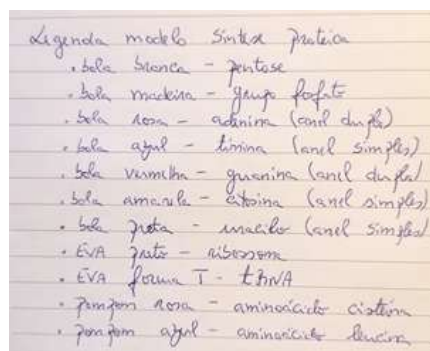 Legenda modelo síntese proteica
. bola branca - pentose
. bola madeira - grupo fosfato
. bola rosa - adenina (anel duplo)
. bola azul - timina (anel simples)
. bola vermelha - guanina (anel duplo)
. bola amarela - citosina (anel simples)
. bola preta - uracila (anel simples)
. EVA preto - ribossoma
. EVA forma T - tRNA
. pompom rosa - aminoácido cisteína
. pompom azul - aminoácido leucina